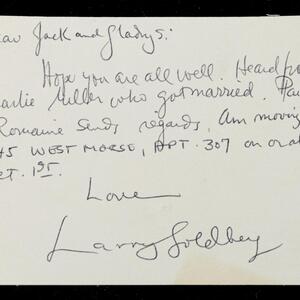 ear Jack and Gladys:
Hope you are all well. Heard fro
arlie Miller who got married. Pau
Romaine sends regards, Am moving
45 WEST MORSE, APT. 307 on or ab
ct. 1st.
Love
Larry Goldbey